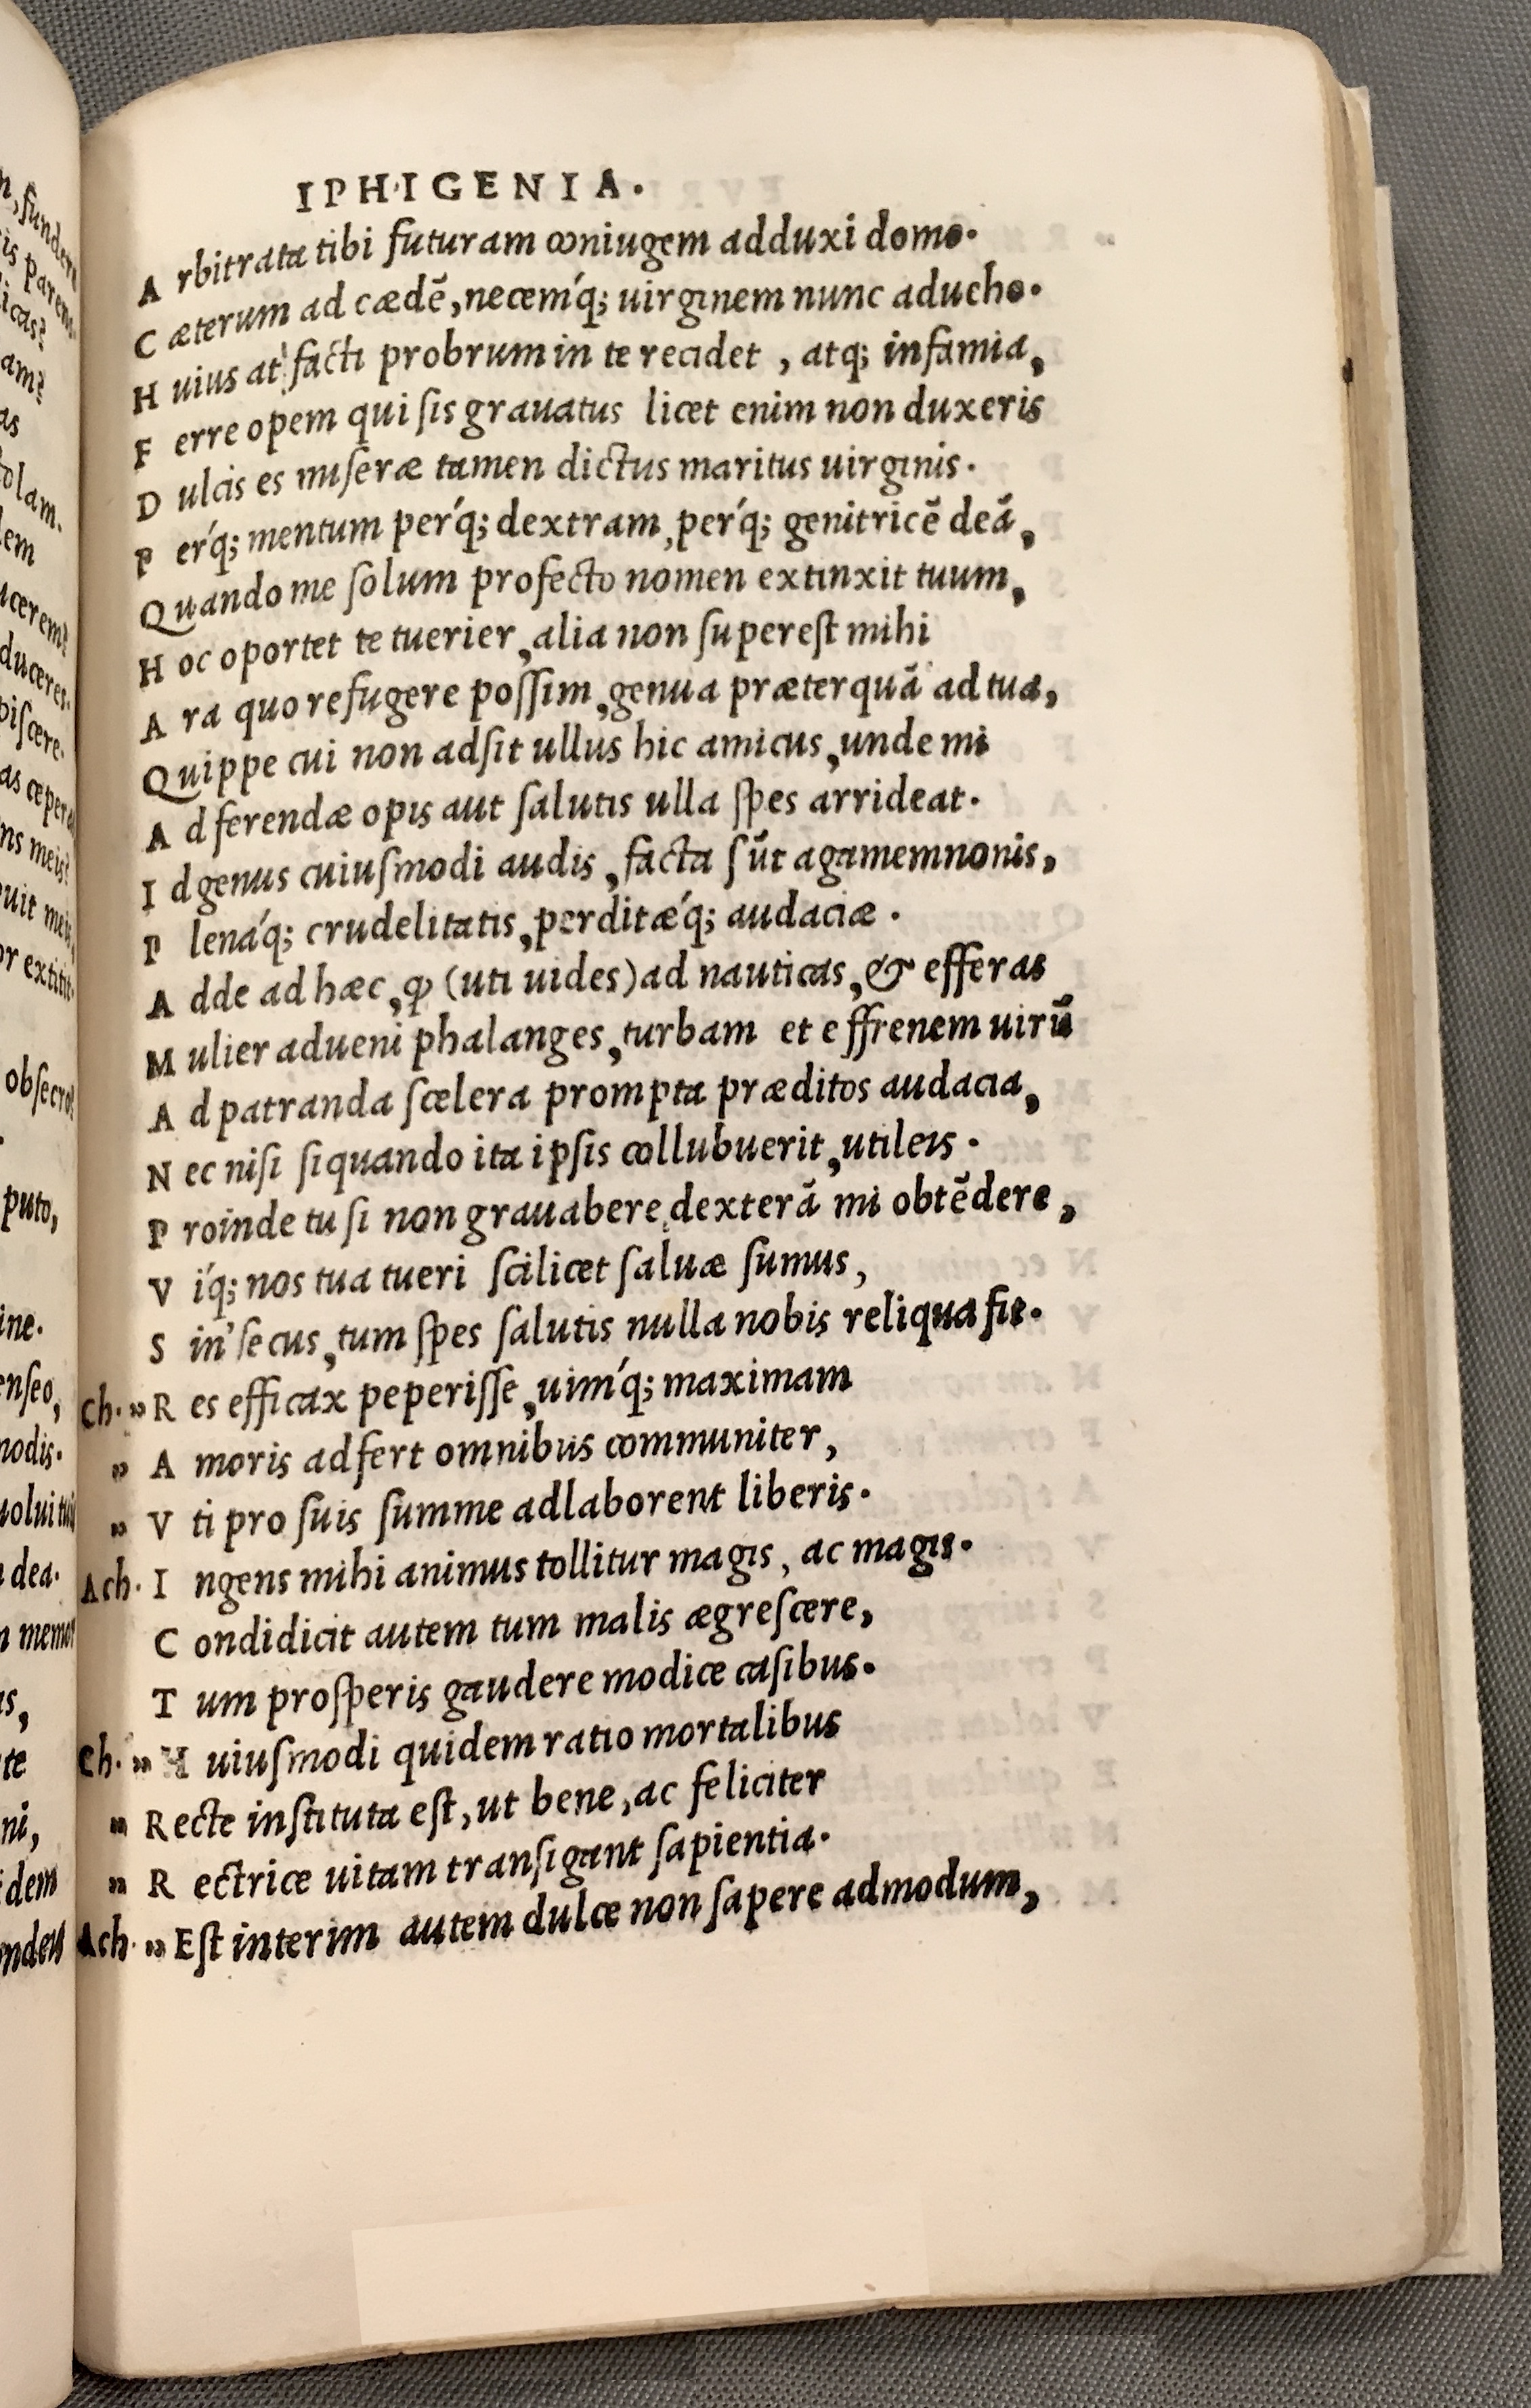 IPHIGENIA.
Arbitrata tibi futuram coniugem adduxi domo.
Cæterum ad cædē, necem'q; uirginem nunc adueho.
Huius at facti probrum in te recidet , atq; infamia,
Ferre opem qui sis grauatus licet enim non duxeris
Dulcis es miseræ tamen dictus maritus uirginis.
Per'q; mentum per'q; dextram, per'q; genitricē deā,
Quando me solum profecto nomen extinxit tuum,
Hoc oportet te tuerier, alia non superest mihi
Ara quo refugere possim, genua præterquā ad tua,
Quippe cui non adsit ullus hic amicus, unde mi
Ad ferendæ opis aut salutis ulla spes arrideat.
Id genus cuiusmodi audis, facta sūt agamemnonis,
Plena'q; crudelitatis, perditæ'q; audaciæ .
Adde ad hæc, ꝙ (uti uides) ad nauticas, & efferas
Mulier adueni phalanges, turbam et effrenem uirū
Ad patranda scelera prompta præditos audacia,
Nec nisi siquando ita ipsis collubuerit, utileis .
Proinde tu si non grauabere dexterā mi obtēdere,
Vi'q; nos tua tueri scilicet saluæ sumus,
Sin' secus, tum spes salutis nulla nobis reliqua fit.
Ch. » Res efficax peperisse, uim'q; maximam
» Amoris adfert omnibus communiter,
» Vti pro suis summe adlaborent liberis.
Ach. Ingens mihi animus tollitur magis, ac magis.
Condidicit autem tum malis ægrescere,
Tum prosperis gaudere modice casibus.
Ch. » Huiusmodi quidem ratio mortalibus
» Recte instituta est, ut bene, ac feliciter
» Rectrice uitam transigant sapientia.
Ach. » Est interim autem dulce non sapere admodum,